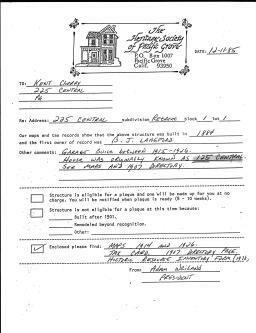 The
Heritage Society
of Pacific Grove
P.O. Box 1007
Pacific Grove
Calif. 93950
DATE: 12-11-85
TO: KENT CHERRY
225 CENTRAL
PG
Re: Address: 225 CENTRAL subdivision block 1 lot 1
Our maps and the records show that the above structure was built in 1884
and the first owner of record was B. J. LANGFORD
Other comments: GARAGE BUILT BETWEEN 1915-1926.
HOUSE WAS ORIGINALLY KNOWN AS 125 CENTRAL
SEE MAPS AND 1907 DIRECTORY.
Structure is eligible for a plaque and one will be made up for you at no
charge. You will be notified when plaque is ready (8 - 10 weeks).
Structure is not eligible for a plaque at this time because:
Built after 1901.
Remodeled beyond recognition.
Other:
Enclosed please find: MAPS 1914 AND 1926.
TAX CARD, 1907 DIRECTORY PAGE
HISTORIC RESOURCE INVENTORY FORM
From ADAM WEILAND
PRESIDENT